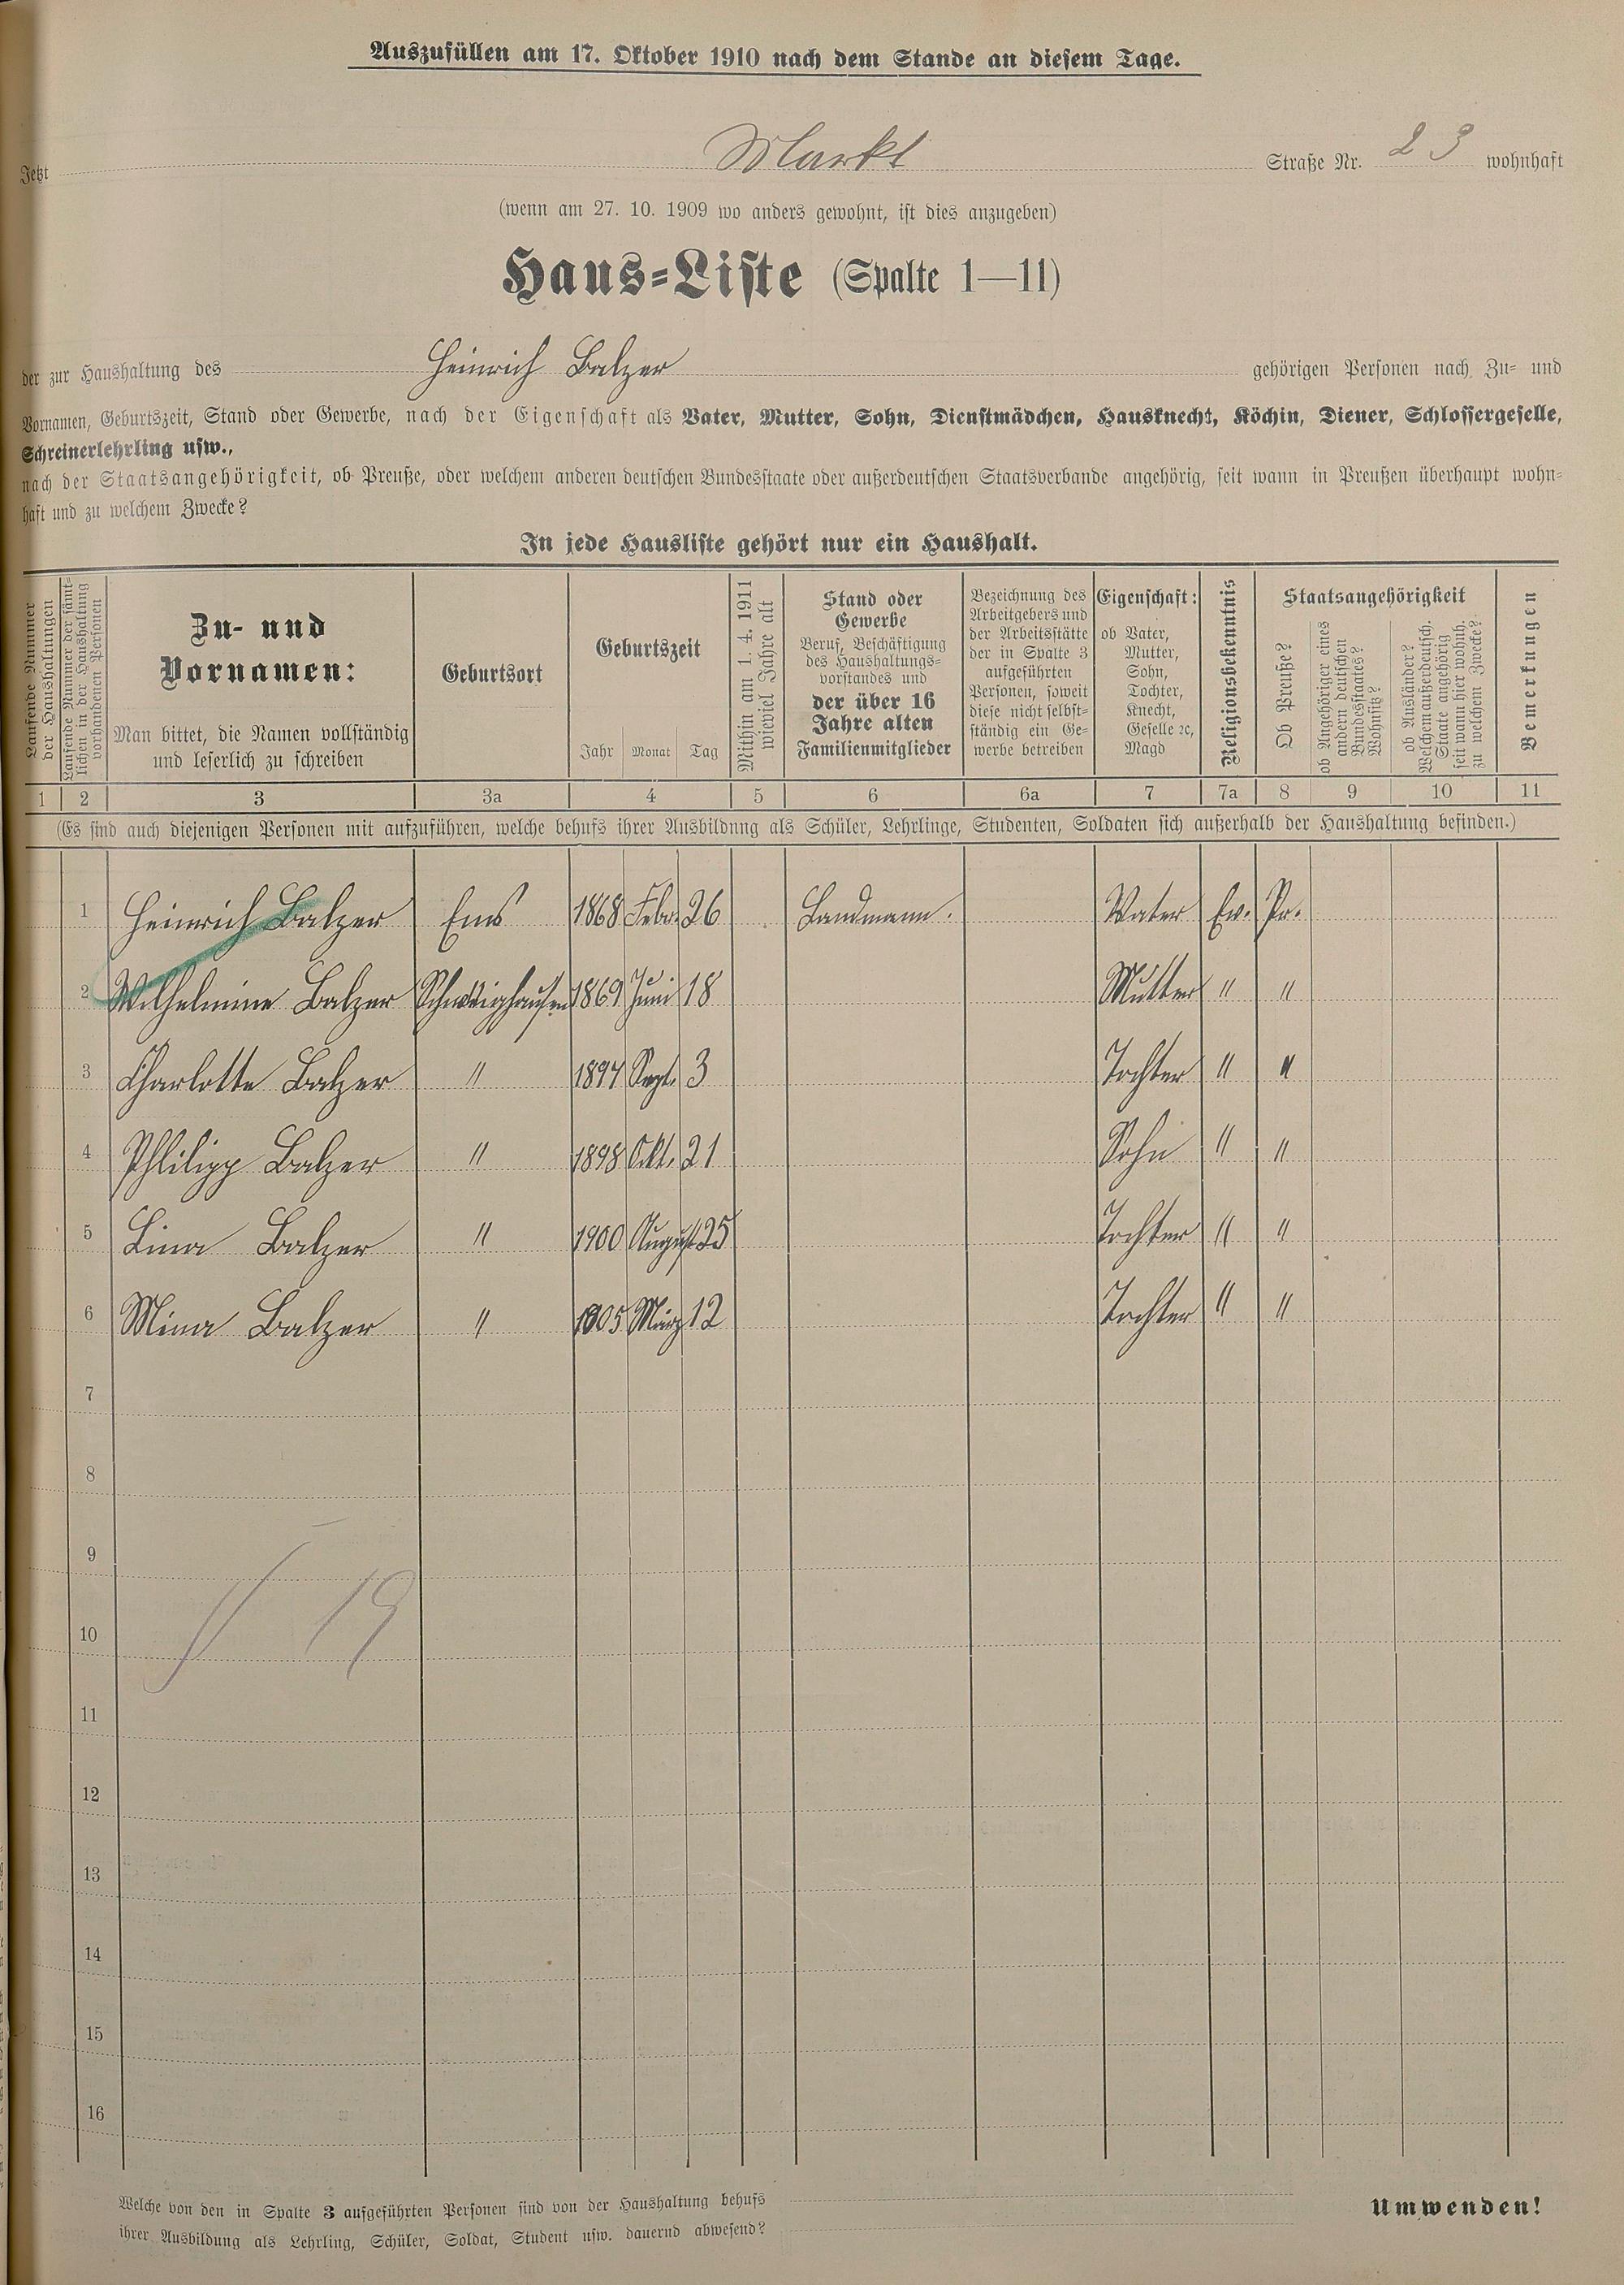 Auszufüllen am 17. Oktober 1910 nach dem Stande an diesem Tage.
Jetzt Markt Straße Nr. 23 wohnhaft
(wenn am 27. 10. 1909 wo anders gewohnt, ist dies anzugeben)
Haus-Liste (Spalte 1—11)
der zur Haushaltung des Heinrich Balzer gehörigen Personen nach Zu- und
Vornamen, Geburtszeit, Stand oder Gewerbe, nach der Eigenschaft als Vater, Mutter, Sohn, Dienstmädchen, Hausknecht, Köchin, Diener, Schlossergeselle,
Schreinerlehrling usw.,
nach der Staatsangehörigkeit, ob Preuße, oder welchem anderen deutschen Bundesstaate oder außerdeutschen Staatsverbande angehörig, seit wann in Preußen überhaupt wohn-
haft und zu welchem Zwecke?
In jede Hausliste gehört nur ein Haushalt.
Laufende Nummer
der Haushaltungen
Laufende Nummer der sämt-
lichen in der Haushaltung
vorhandenen Personen
Zu- und
Vornamen:
Man bittet, die Namen vollständig
und leserlich zu schreiben
Geburtsort
Geburtszeit
Jahr Monat Tag
Mithin am 1. 4. 1911
wieviel Jahre alt
Stand oder
Gewerbe
Beruf, Beschäftigung
des Haushaltungs-
vorstandes und
der über 16
Jahre alten
Familienmitglieder
Bezeichnung des
Arbeitgebers und
der Arbeitsstätte
der in Spalte 3
aufgeführten
Personen, soweit
diese nicht selbst-
ständig ein Ge-
werbe betreiben
Eigenschaft:
ob Vater,
Mutter,
Sohn,
Tochter,
Knecht,
Geselle ꝛc,
Magd
Religionsbekenntnis
Staatsangehörigkeit
Ob Preuße?
ob Angehöriger eines
andern deutschen
Bundesstaates?
Wohnsitz?
ob Ausländer?
Welchem außerdeutsch.
Staate angehörig
seit wann hier wohnh.
zu welchem Zwecke?
Bemerkungen
1 2 3 3a 4 5 6 6a 7 7a 8 9 10 11
(Es sind auch diejenigen Personen mit aufzuführen, welche behufs ihrer Ausbildung als Schüler, Lehrlinge, Studenten, Soldaten sich außerhalb der Haushaltung befinden.)
1 Heinrich Balzer Ems 1868 Febr. 26 Landmann. Vater Ev. Pr.
2 Wilhelmine Balzer Schweighausen 1869 Juni 18 Mutter " "
3 Charlotte Balzer " 1894 Sept. 3 Tochter " "
4 Phlilipp Balzer " 1898 Okt. 21 Sohn " "
5 Lina Balzer " 1900 August 25 Tochter " "
6 Mina Balzer " 1905 März 12 Tochter " "
7
8
9
10
19
11
12
13
14
15
16
Welche von den in Spalte 3 aufgeführten Personen sind von der Haushaltung behufs
ihrer Ausbildung als Lehrling, Schüler, Soldat, Student usw. dauernd abwesend?
Umwenden!